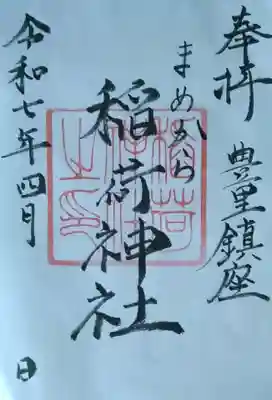 奉拝 豊里鎮座
まめから
稲荷神社
令和七年四月 日